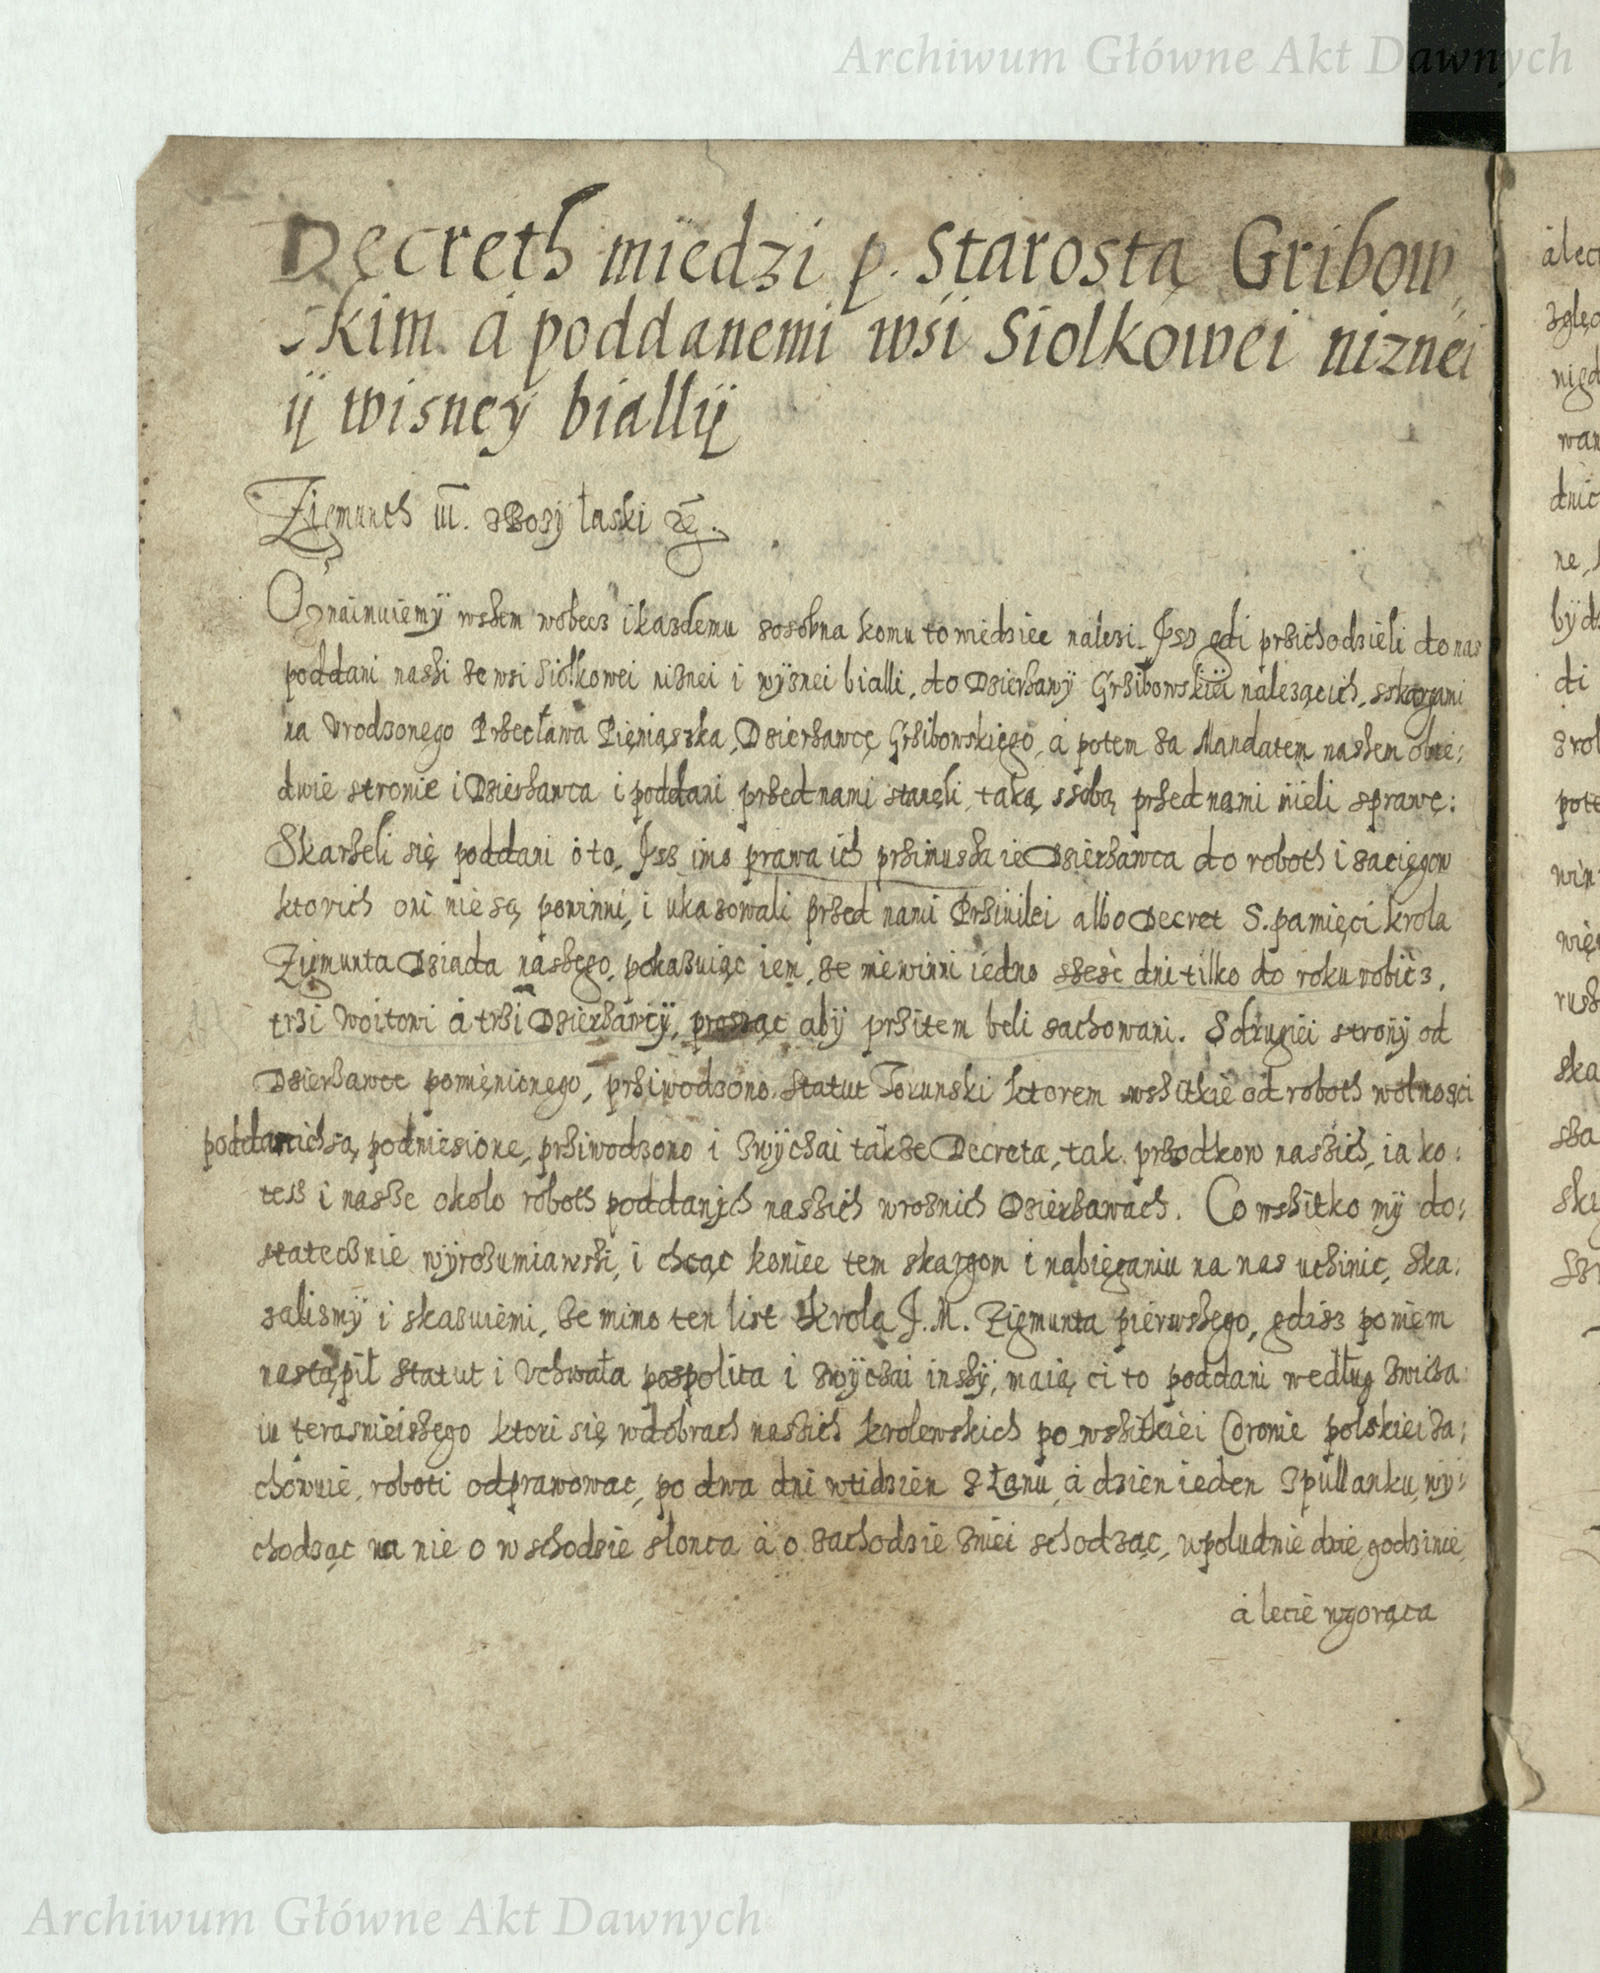 Archiwum Główne Akt Dawnych
Decreth miedzi p. Starostą Gribow
skim á poddanemi wśi Siolkowei niznei
ÿ wisney biallÿ
Zigmunth III. z Bozÿ łaski etc.
Oznaimuiemÿ wshem wobecz i kazdemu zosobna komu to wiedziec nalezi. Isz gdi przichodzieli do nas
poddani nashi ze wsi Siołkowei niznei i wÿznei bialli, do Dzierzawÿ Grzibowskiÿ nalezącich, sskargami
na Vrodzonego Przecława Pięniąszka, Dzierzawcę Grzibowskięgo, á potem za Mandatem nashem obie:
dwie stronie i Dzierzawca i poddani przed nami stanęli, taką ssobą przed nami mieli sprawę:
Skarzeli się poddani o to, Isz imo prawa ich przimusza ie Dzierzawca do roboth i zacięgow
ktorich oni nie są powinni, i ukazowali przed nami Prziwilei albo Decret S. pamięci krola
Zigmunta Dziada naszego, pokazuiąc iem, ze niewinni iedno szesc dni tilko do roku robicz,
trzi Woitowi á trzi Dzierzawcÿ, prosząc abÿ przitem beli zachowani. S drugiei stronÿ od
Dzierzawce pomięnionego, prziwodzono Statut Torunski ktorem wshitkie od roboth wolnosci
poddanich są podniesione, prziwodzono i zwÿczai także Decreta, tak przodkow naszich, iako:
tesz i nasze około roboth poddanÿch naszich wroznich Dzierzawach. Co wshitko mÿ do:
statecznie wÿrozumiawshi, i chcąc koniec tem skargom i nabięganiu na nas uczinic, Ska:
zalismÿ i skazuiemi, ze mimo ten list Krola J. M. Zigmunta pierwshego, gdisz poniem
nastąpił Statut i Vchwała pospolita i zwÿczai inshÿ, maią ci to poddani według zwicza:
iu teraznieiszego ktori się wdobrach naszich krolewskich po wshitkiei Coronie polskiei za:
chowuie, roboti odprawowac, po dwa dni wtidzien z Łanu, á dzien ieden z pullanku, wÿ:
chodząc na nie o wschodzie slonca á o zachodzie zniei schodząc, wpoludnie dwie godzinie,
á lecie wgorąca
Archiwum Główne Akt Dawnych